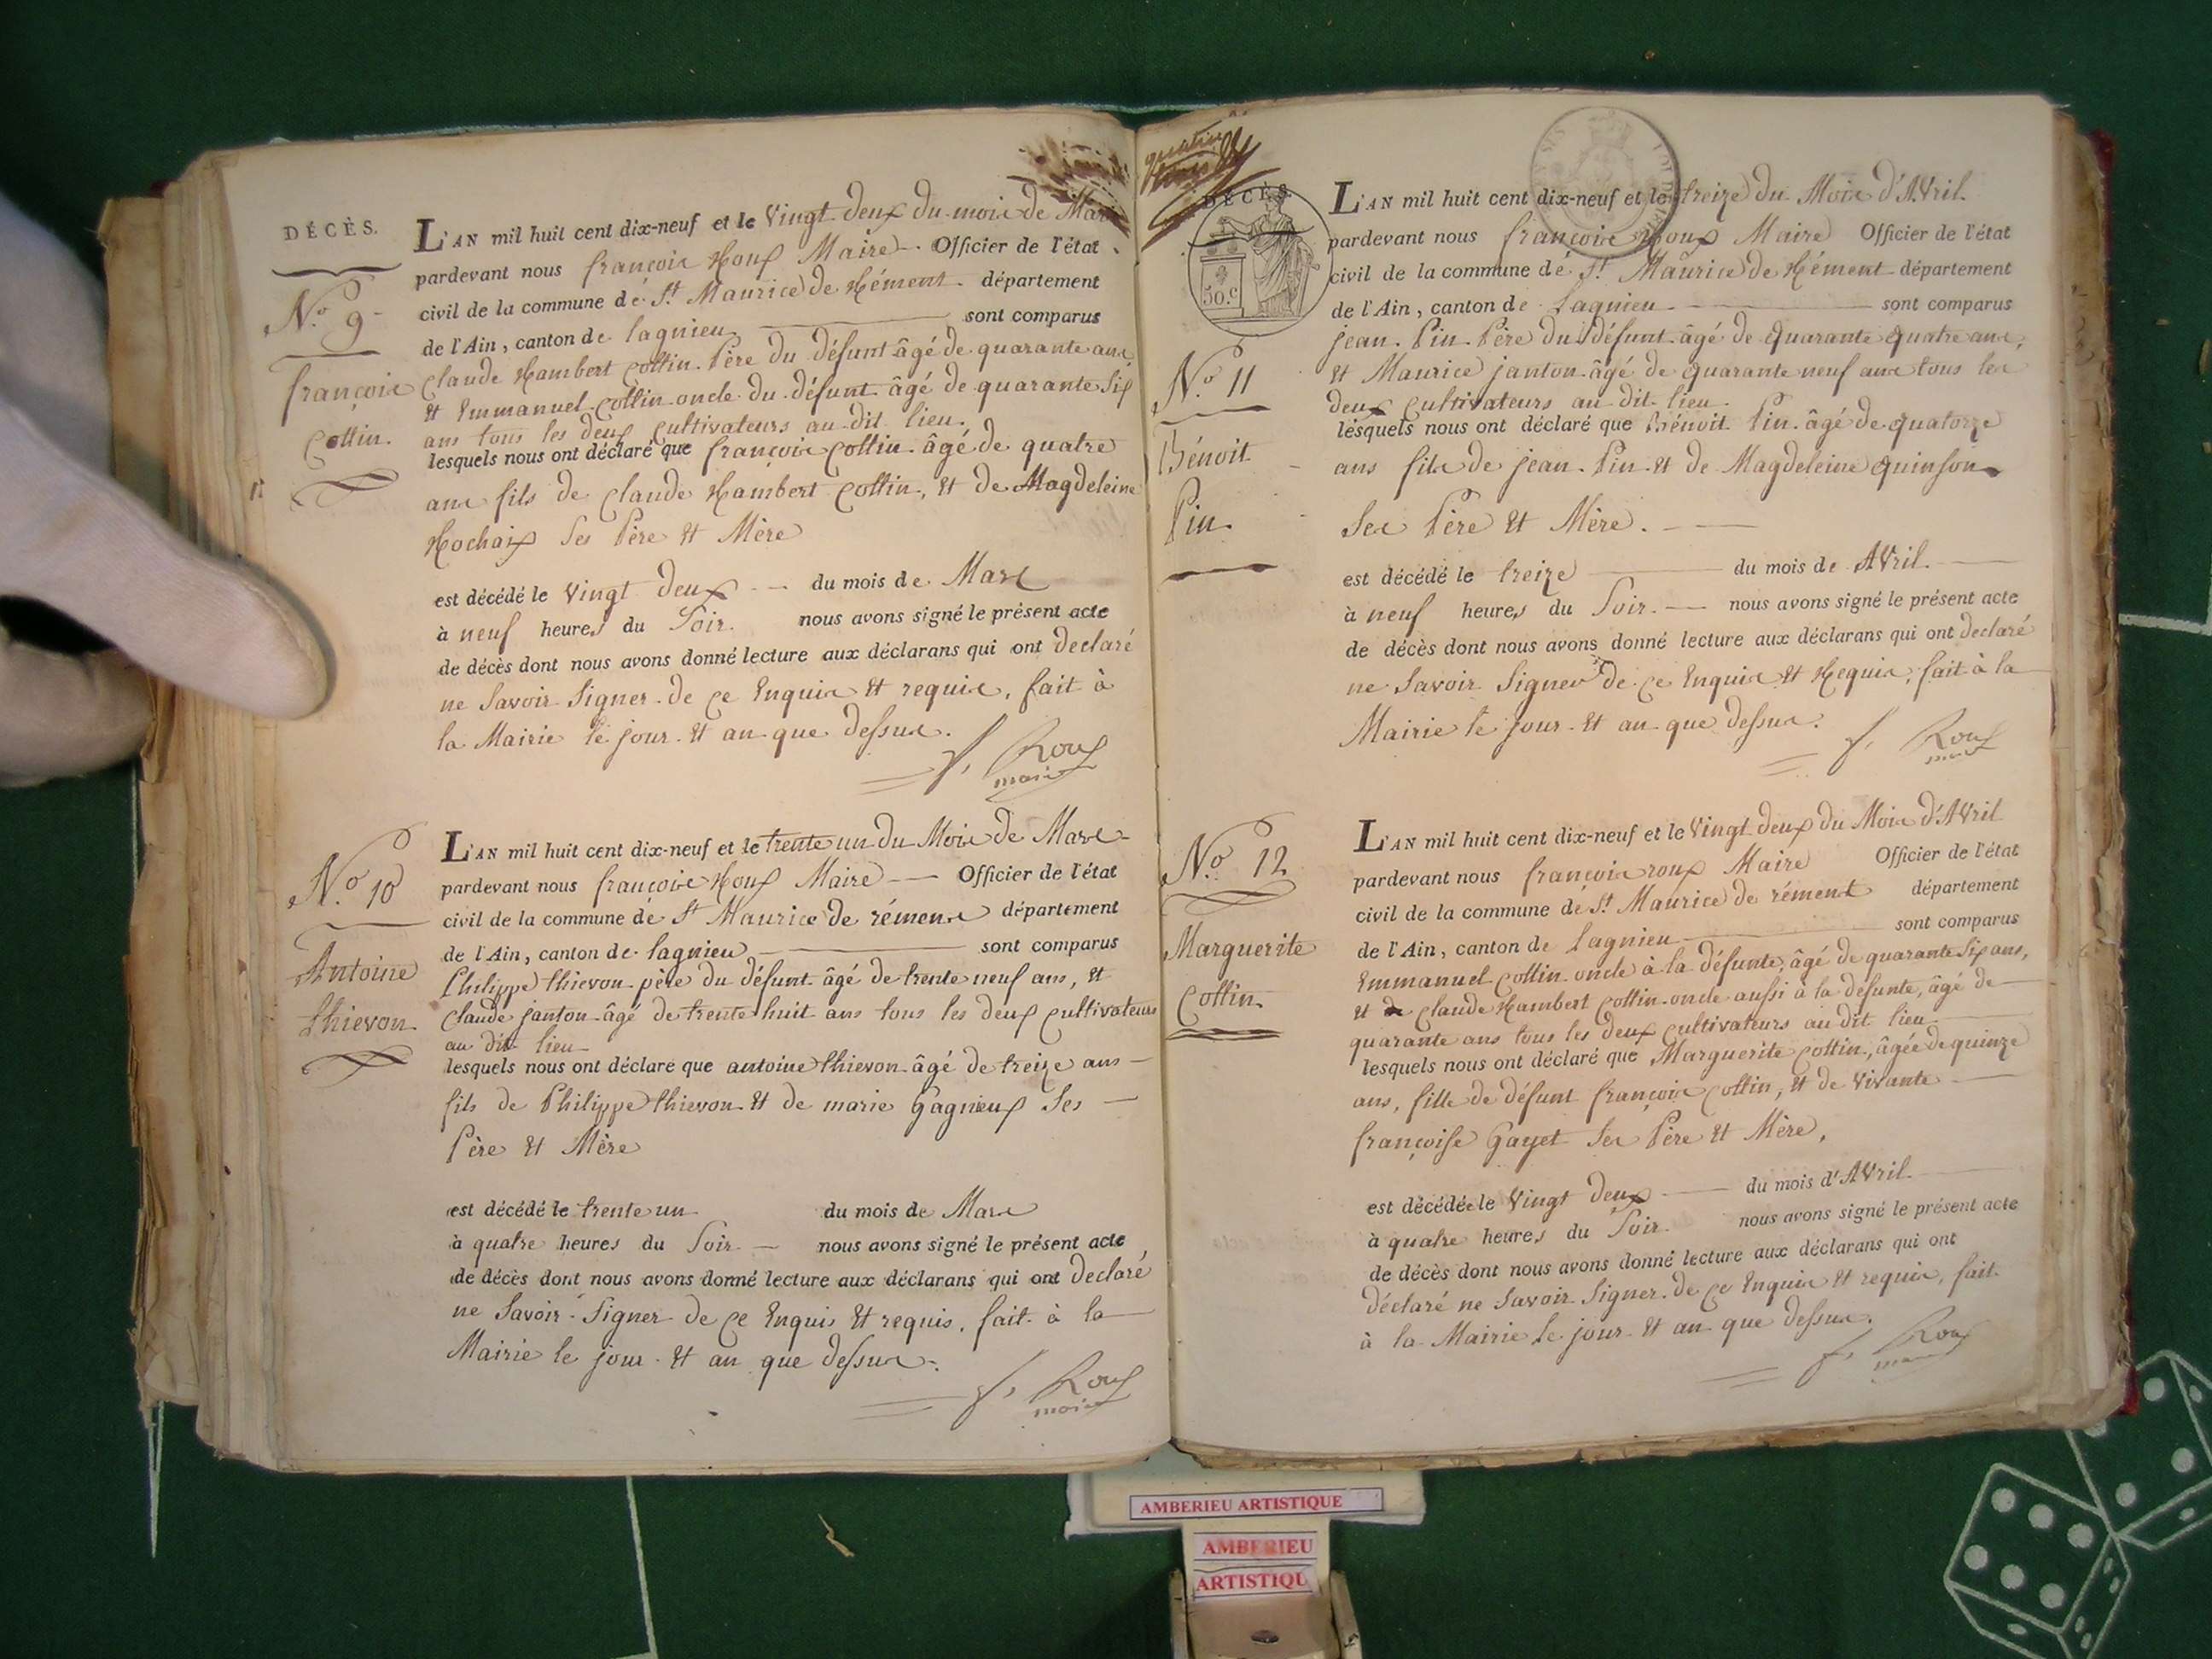 DÉCÈS.
N.o 9
françois
Cottin.
L'AN mil huit cent dix-neuf et le Vingt deux du mois de Mars
pardevant nous françois Roux Maire Officier de l'état
civil de la commune de St Maurice de Rémens département
de l'Ain, canton de Lagnieu sont comparus
Claude Rambert Cottin Père du défunt âgé de quarante ans,
et Emmanuel Cottin oncle du défunt âgé de quarante Six
ans tous les deux Cultivateurs au dit lieu.
lesquels nous ont déclaré que françois Cottin âgé de quatre
ans fils de Claude Rambert Cottin, et de Magdeleine
Rochaix Ses Père et Mère
est décédé le Vingt deux du mois de Mars
à neuf heures du Soir. nous avons signé le présent acte
de décès dont nous avons donné lecture aux déclarans qui ont declaré
ne Savoir Signer de ce Enquis et requis, fait à
la Mairie le jour et an que dessus.
f. Roux
maire
N.o 10
Antoine
thievon
L'AN mil huit cent dix-neuf et le trente un du Mois de Mars
pardevant nous françois Roux Maire Officier de l'état
civil de la commune de St Maurice de rémens département
de l'Ain, canton de lagnieu sont comparus
Philippe thievon père du défunt âgé de trente neuf ans, et
Claude janton âgé de trente huit ans tous les deux Cultivateurs
au dit lieu
lesquels nous ont déclaré que antoine thievon âgé de treize ans
fils de Philippe thievon et de marie Gagnieux Ses
Père et Mère
est décédé le trente un du mois de Mars
à quatre heures du Soir nous avons signé le présent acte
de décès dont nous avons donné lecture aux déclarans qui ont declaré
ne Savoir Signer de ce Enquis et requis, fait à la
Mairie le jour et an que dessus.
f. Roux
maire
DÉCÈS.
50.c
N.o 11
Bénoit
Pin.
L'AN mil huit cent dix-neuf et le treize du Mois d'Avril
pardevant nous françois Roux Maire Officier de l'état
civil de la commune de St Maurice de Rémens département
de l'Ain, canton de Lagnieu sont comparus
jean Pin Père du défunt âgé de quarante quatre ans,
et Maurice janton âgé de quarante neuf ans tous les
deux Cultivateurs au dit lieu.
lesquels nous ont déclaré que Bénoit Pin âgé de quatorze
ans fils de jean Pin et de Magdeleine quinson
Ses Père et Mère.
est décédé le treize du mois de Avril.
à neuf heures du Soir. nous avons signé le présent acte
de décès dont nous avons donné lecture aux déclarans qui ont declaré
ne Savoir Signer de ce Enquis et Requis, fait à la
Mairie le jour et an que dessus.
f. Roux
maire
N.o 12
Marguerite
Cottin
L'AN mil huit cent dix-neuf et le Vingt deux du Mois d'Avril
pardevant nous françois roux Maire Officier de l'état
civil de la commune de St Maurice de rémens département
de l'Ain, canton de Lagnieu sont comparus
Emmanuel Cottin oncle à la défunte, âgé de quarante Six ans,
et Claude Rambert Cottin oncle aussi à la défunte, âgé de
quarante ans tous les deux Cultivateurs au dit lieu
lesquels nous ont déclaré que Marguerite Cottin, âgée de quinze
ans, fille de défunt françois Cottin, et de Vivante
françoise Gayet Ses Père et Mère,
est décédée le Vingt deux du mois d'Avril
à quatre heures du Soir nous avons signé le présent acte
de décès dont nous avons donné lecture aux déclarans qui ont
déclaré ne Savoir Signer de ce Enquis et requis, fait
à la Mairie le jour et an que dessus.
f. Roux
maire
AMBERIEU ARTISTIQUE
AMBERIEU
ARTISTIQU